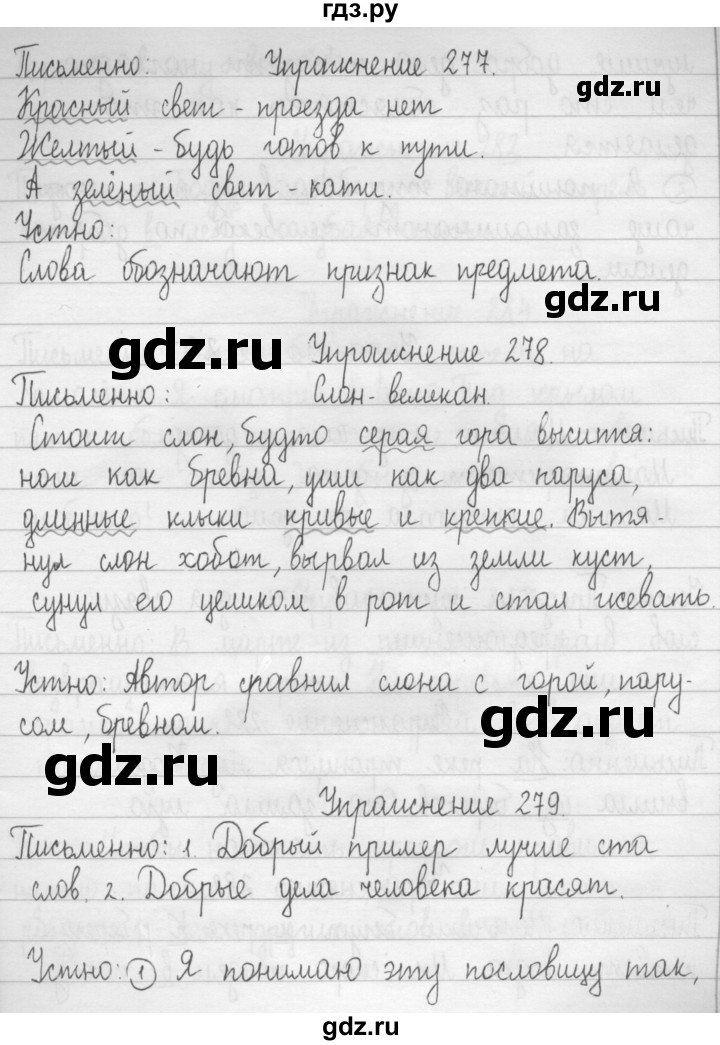 гдз.ру
Письменно: Упражнение 277.
Красный свет - проезда нет
Желтый - будь готов к пути.
А зелёный свет - кати.
Устно:
Слова обозначают признак предмета.
gdz.ru
gdz.ru
gdz.ru
Упражнение 278.
Письменно: Слон-великан.
Стоит слон, будто серая гора высится:
ноги как бревна, уши как два паруса,
длинные клыки кривые и крепкие. Вытя-
нул слон хобот, вырвал из земли куст,
сунул его целиком в рот и стал жевать.
Устно: Автор сравнил слона с горой, пару-
сом, бревном.
gdz.ru
gdz.ru
Упражнение 279.
Письменно: 1. Добрый пример лучше ста
слов. 2. Добрые дела человека красят.
Устно: 1 Я понимаю эту пословицу так,
gdz.ru